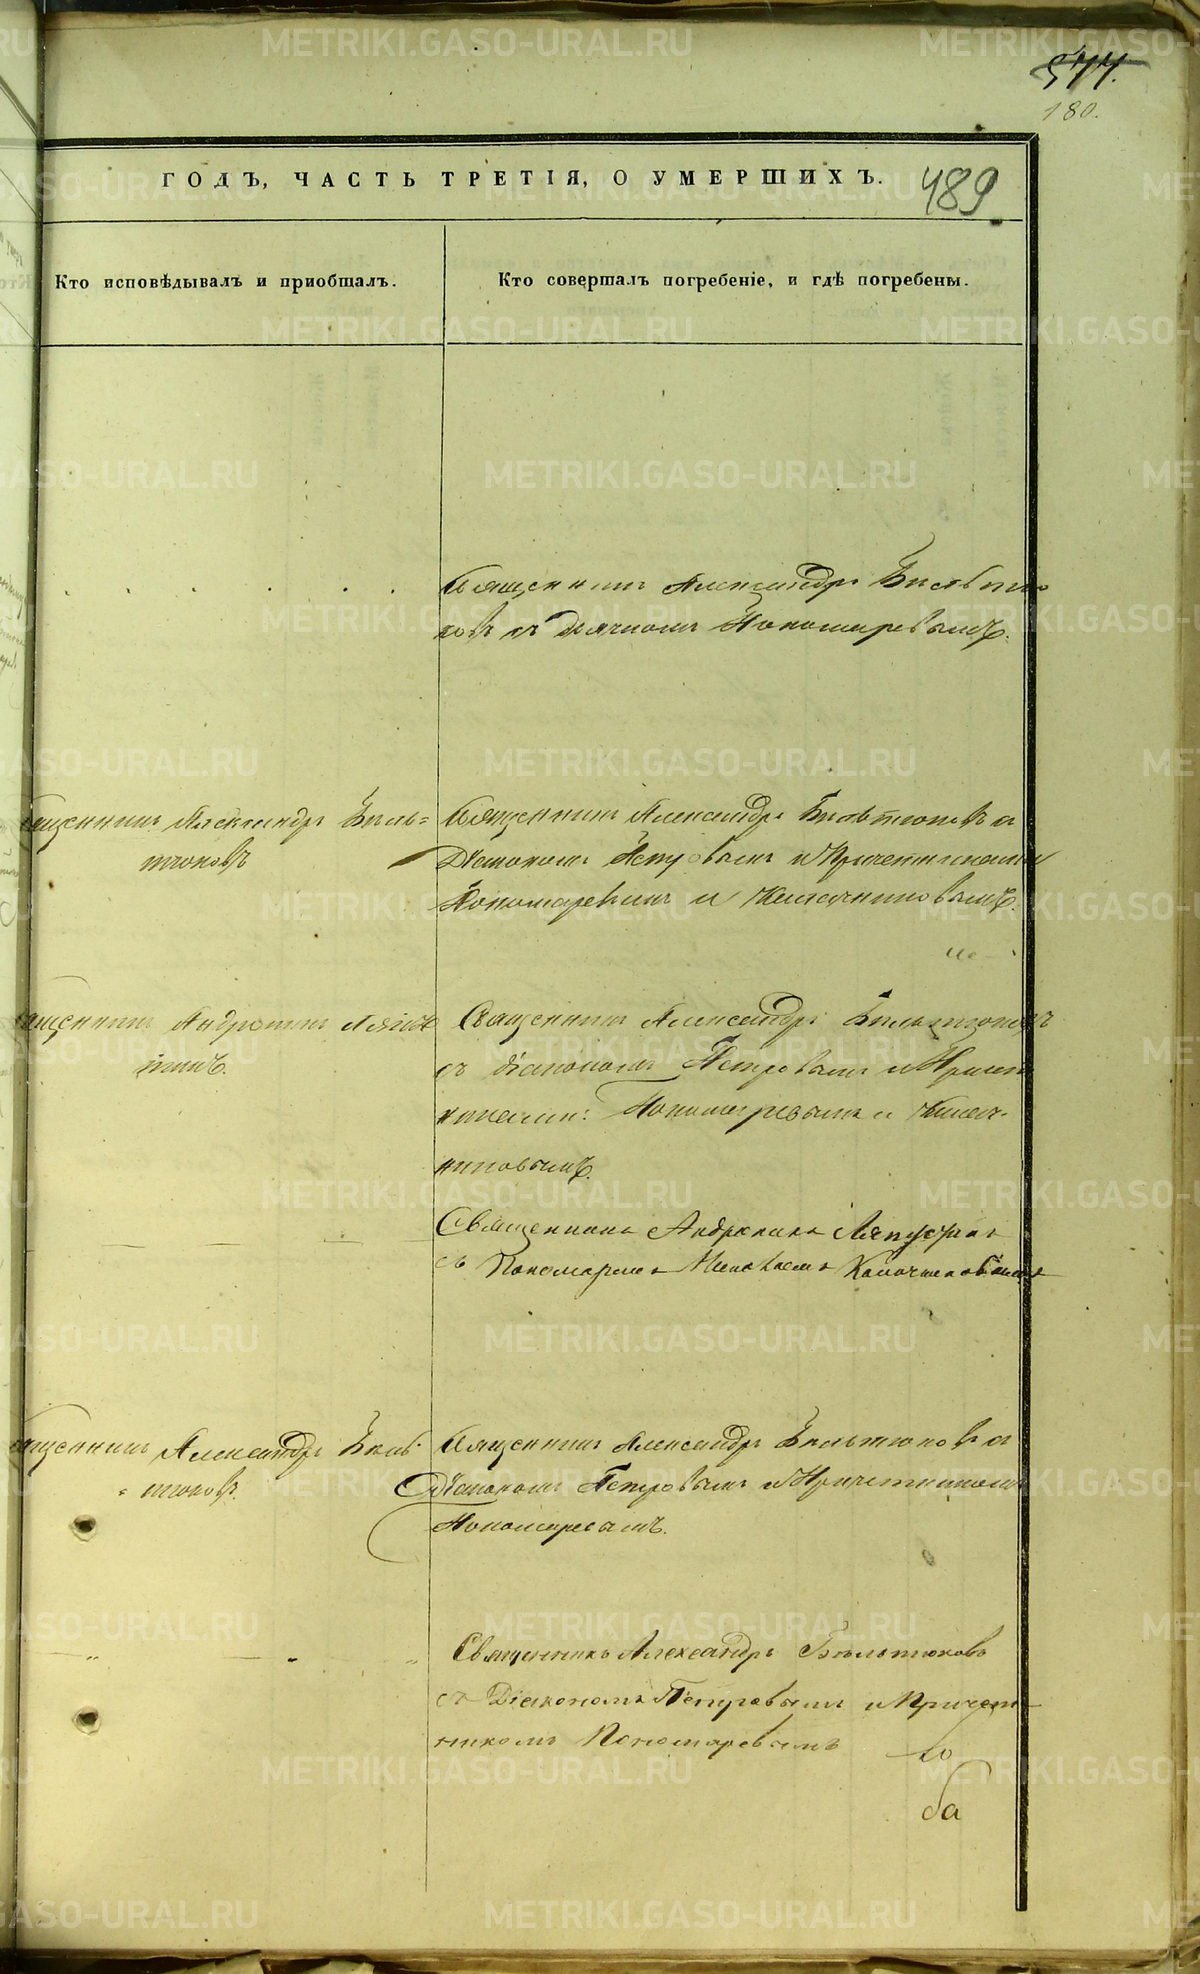 577.
180.
ГОДЪ, ЧАСТЬ ТРЕТІЯ, О УМЕРШИХЪ.
489
Кто исповѣдывалъ и пріобщалъ.
Кто совершалъ погребеніе, и гдѣ погребены.
Священникъ Александръ Бѣльтю-
ковъ съ дьячкомъ Пономаревымъ.
Священникъ Александръ Бѣль=
тюковъ
Священникъ Александръ Бѣльтюковъ съ
Діакономъ Петровымъ и Причетниками
Пономаревымъ и
Священникъ Андроникъ
Священникъ Александръ Бѣльтюковъ
съ діакономъ Петровымъ и Причет
никами: Пономаревымъ и
никовымъ.
Священникъ Андроникъ Ляпустинъ
съ Пономаремъ Михаиломъ
Священникъ Александръ Бѣль
тюковъ.
Священникъ Александръ Бѣльтюковъ съ
Діакономъ Петровымъ и Причетникомъ
Пономаревымъ.
Священникъ Александръ Бѣльтюковъ
съ Діакономъ Петровымъ и Причет-
никомъ Пономаревымъ
ба
METRIKI.GASO-URAL.RU